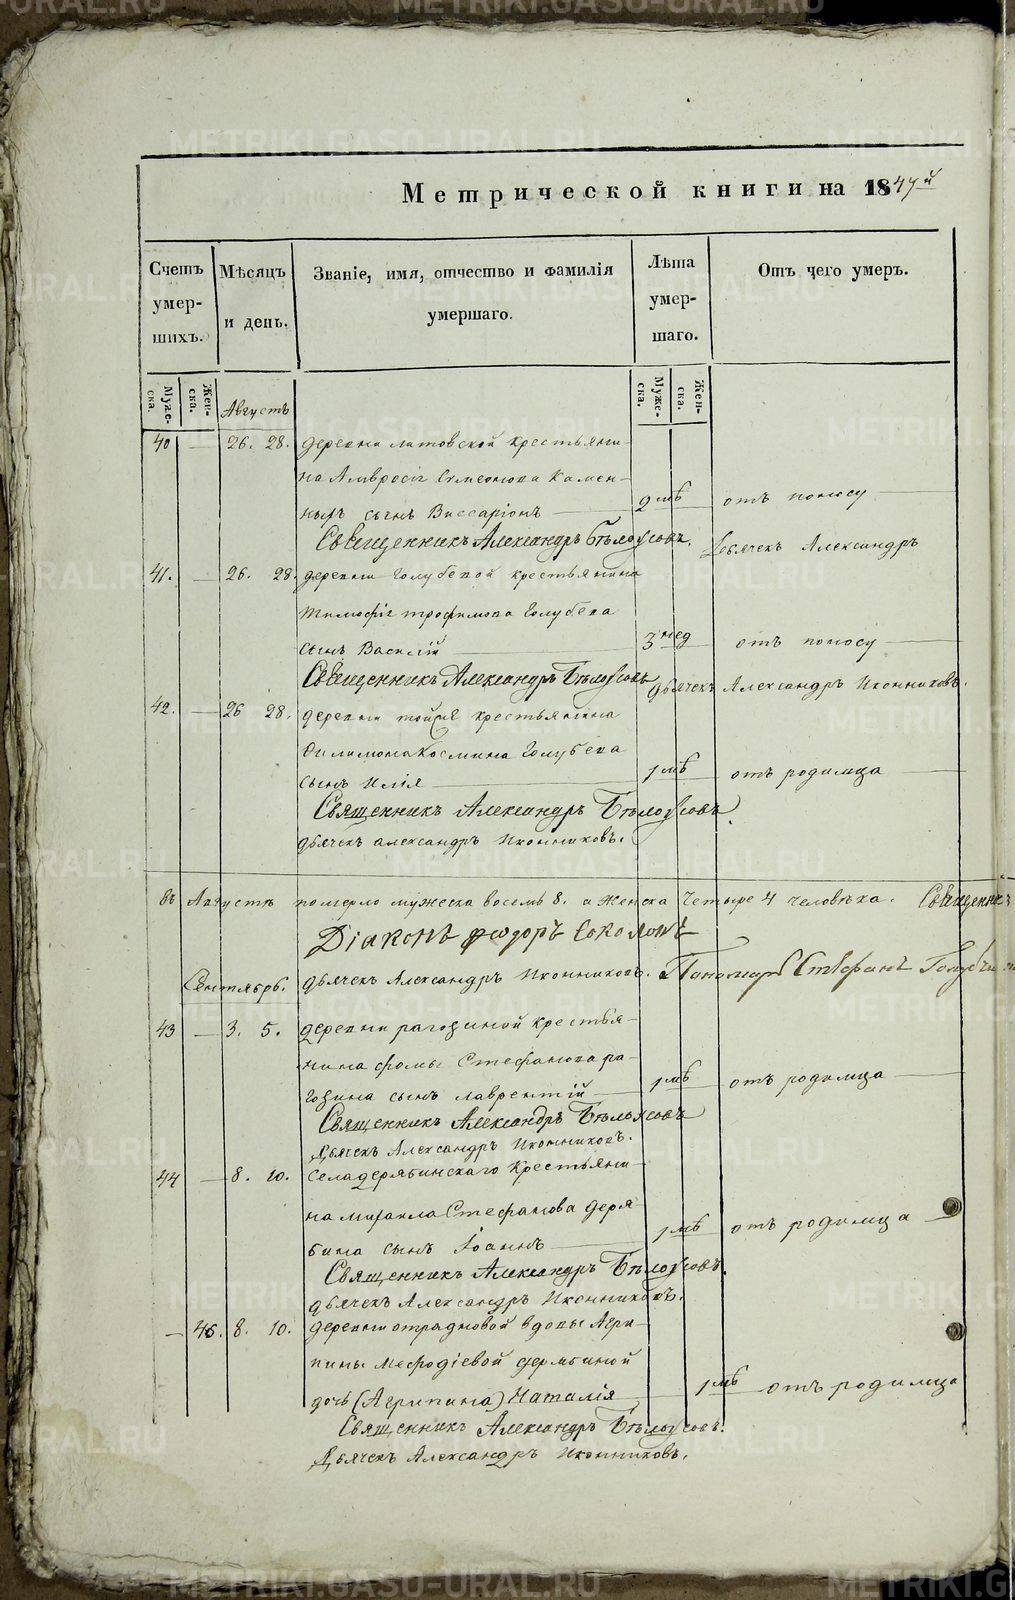 Метрической книги на 1847й
Счетъ умерших. Мѣсяцъ и день. Званіе, имя, отчество и фамилія умершаго. Лѣта умершаго. Отъ чего умеръ.
Мужеска. Женска. Мужеска. Женска.
Августъ
40 — 26. 28. деревни литовской крестьяни-
на Амвросія Симеонова Камен-
ныхъ сынъ Виссаріонъ — 2 мѣ отъ поносу —
Священникъ Александръ Бѣлоусовъ. Дьячекъ Александръ
41. — 26. 28. деревни Голубевой крестьянина
Тимофея трофимова Голубева
сынъ Василій — 3 нед отъ поносу —
Священникъ Александръ Бѣлоусовъ Дьячекъ Александръ Иконниковъ.
42. — 26 28. деревни тойже крестьянина
Филимона Космина Голубева
сынъ Илія — 1 мѣ отъ родимца —
Священникъ Александръ Бѣлоусовъ.
дьячекъ александръ Иконниковъ.
въ Августѣ померло мужеска восемь 8. а женска четыре 4 человѣка. Священникъ
Діаконъ Ѳеодоръ Соколовъ
Сентябрь. дьячекъ Александръ Иконниковъ. Пономарь Стефанъ
43 — 3. 5. деревни рагозиной крестья-
нина фомы Стефанова ра-
гозина сынъ лаврентій — 1 мѣ отъ родимца —
Священникъ Александръ Бѣлоусовъ
Дьячекъ Александръ Иконниковъ.
44 — 8. 10. Села дерябинскаго крестьяни-
на михаила Стефанова Деря
бина сынъ Іоаннъ — 1 мѣ отъ родимца —
Священникъ Александръ Бѣлоусовъ.
дьячекъ Александръ Иконниковъ.
— 45. 8. 10. деревни отрадновой вдовы Агри-
пины Мефодіевой дерябиной
дочь (Агрипина) Наталія — 1 мѣ отъ родимца
Священникъ Александръ Бѣлоусовъ.
Дьячекъ Александръ Иконниковъ.
METRIKI.GASO-URAL.RU